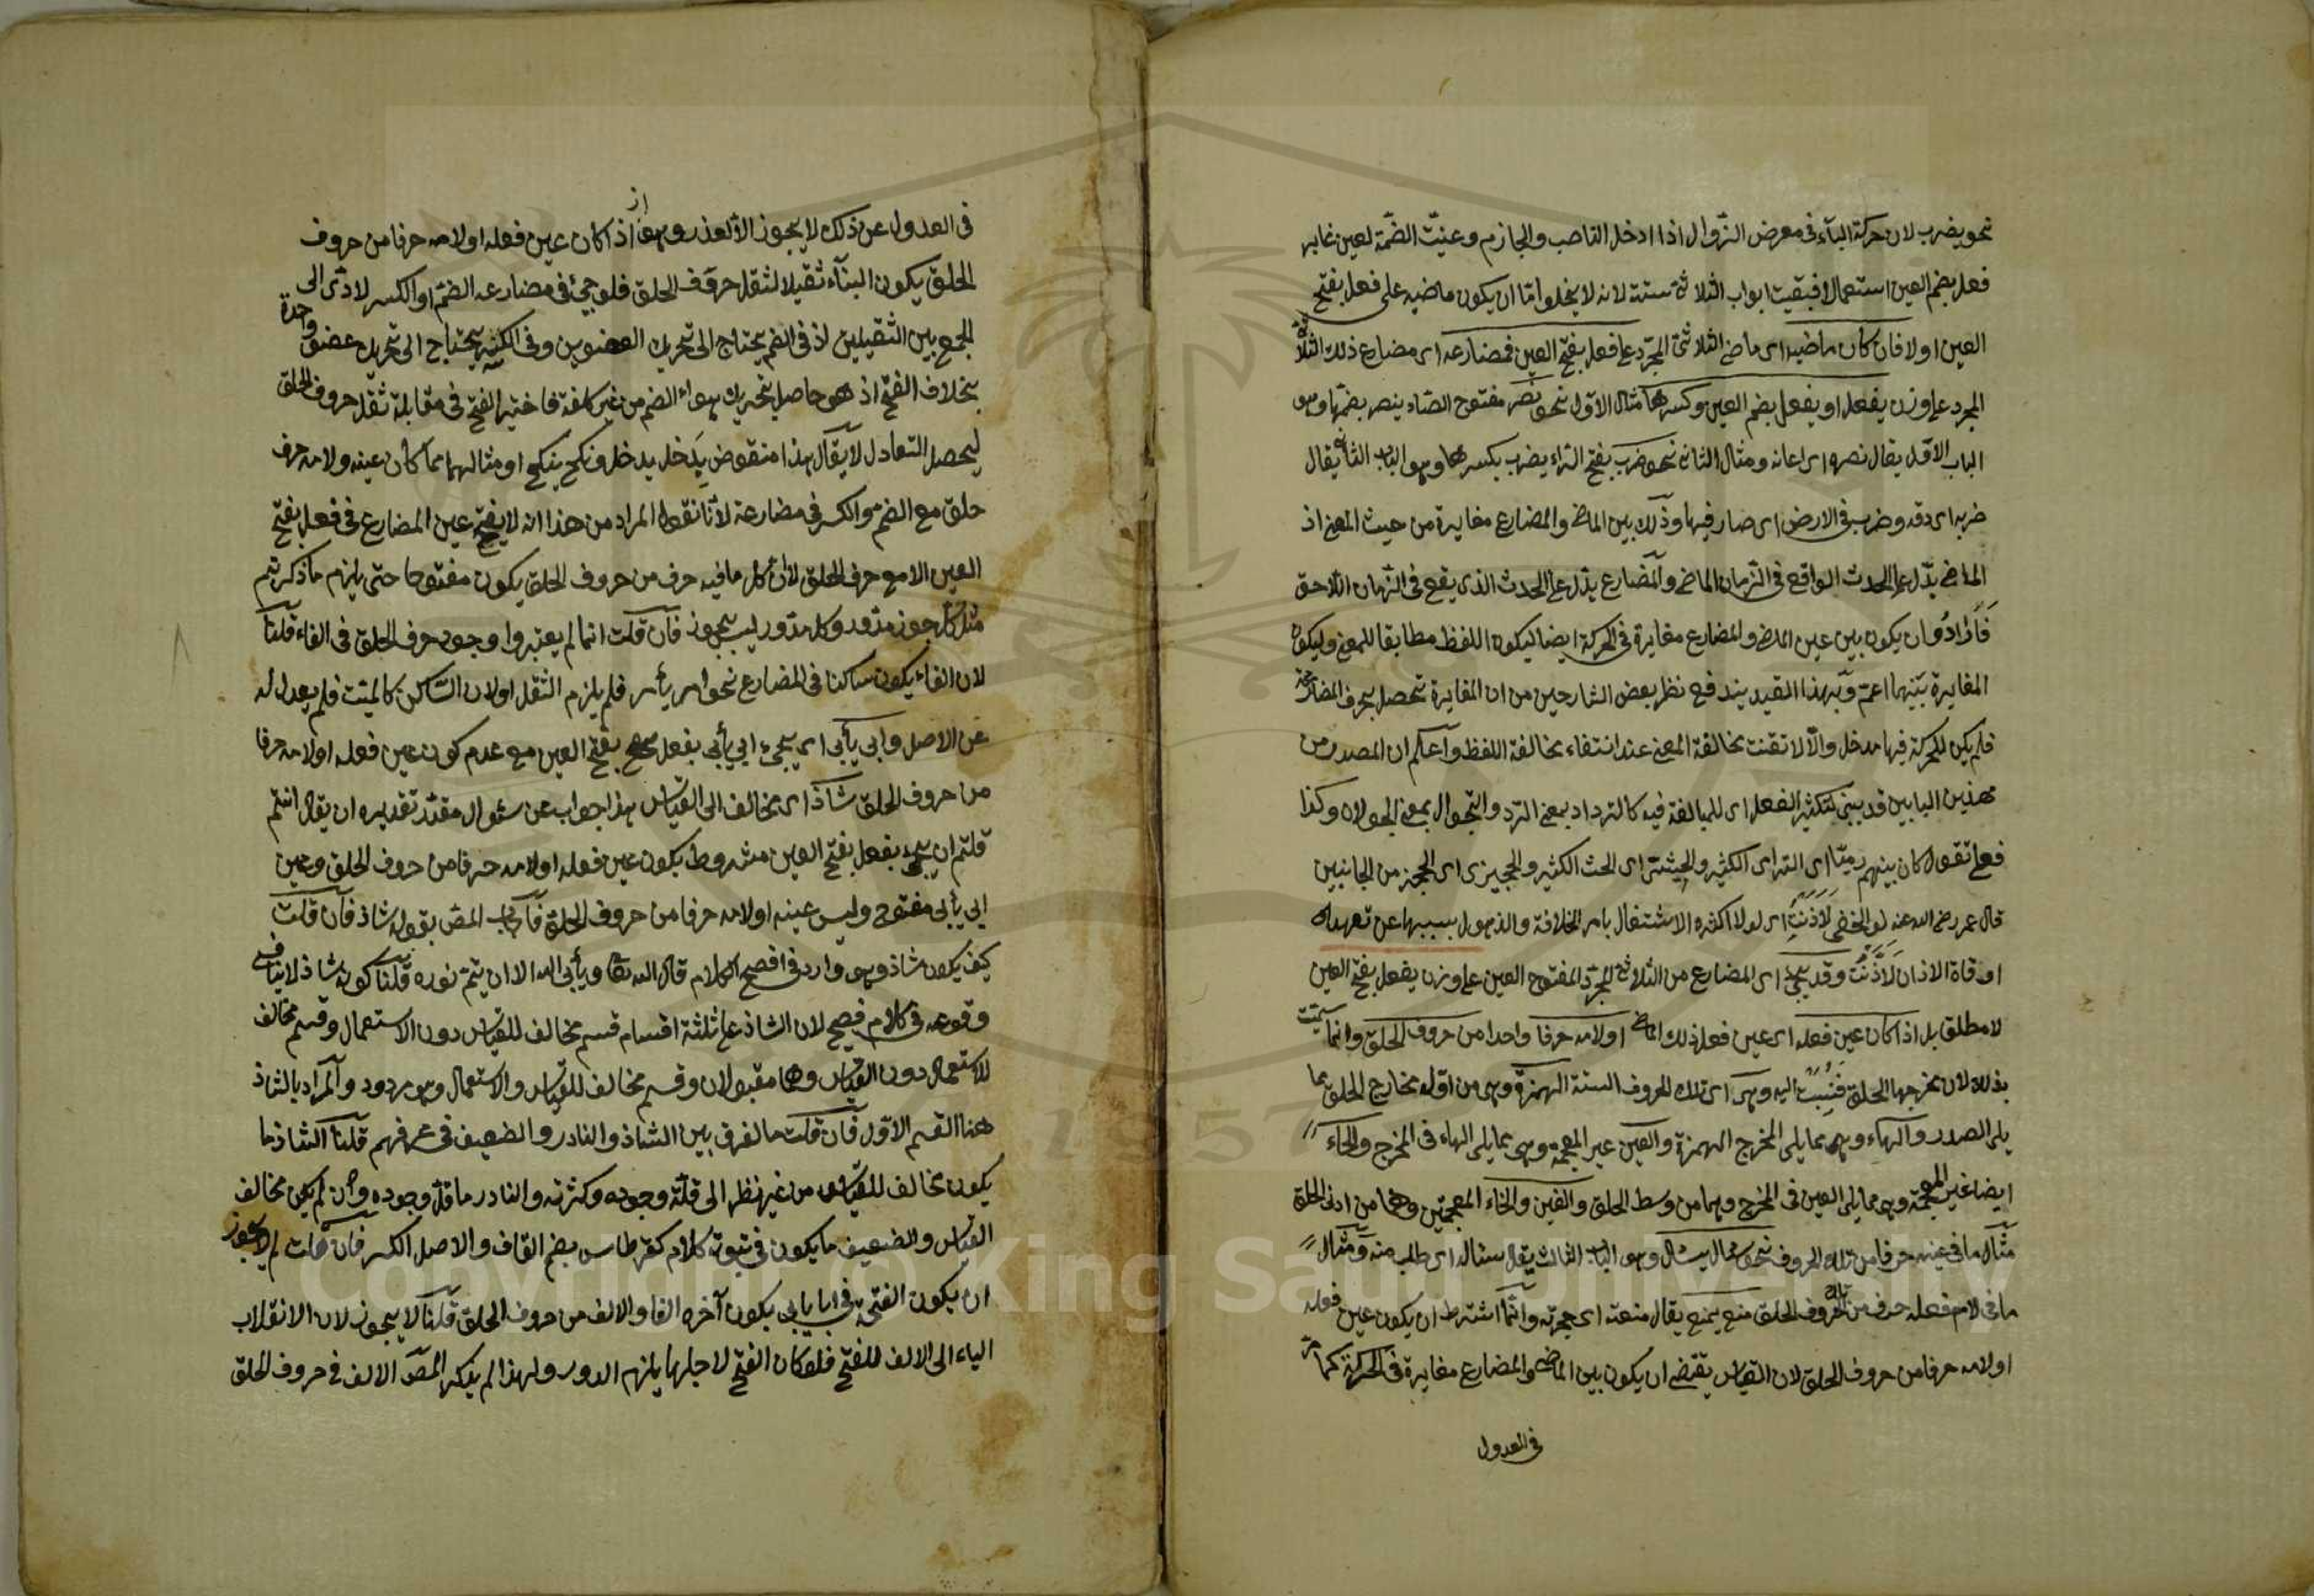 نحو يضرب لان حركة الباء فى معرض الزوال اذا ادخل الناصب والجازم وعينت الضمة لعين غابر
فعل بضم العين استعمالا فبقيت ابواب الثلاثة ستة لانه لا يخلو اما ان يكون ماضيه على فعل بفتح
العين اولا فان كان ماضيه اى ماضى الثلاثى المجرد على فعل بفتح العين فمضارعه اى مضارع ذلك الثلاثى
المجرد على وزن يفعل او يفعل بضم العين وكسرها مثال الاول نحو نصر مفتوح الصاد ينصر بضمها وهو
الباب الاول يقال نصره اى اعانه ومثال الثانى نحو ضرب بفتح الراء يضرب بكسرها وهو الباب الثانى يقال
ضربه اى دقه وضرب فى الارض اى صار فيها وذلك بين الماضى والمضارع مغايرة من حيث المعنى اذ
الماضى يدل على الحدث الواقع فى الزمان الماضى والمضارع يدل على الحدث الذى يقع فى الزمان اللاحق
فارادوا ان يكون بين عين الماضى والمضارع مغايرة فى الحركة ايضا ليكون اللفظ مطابقا للمعنى وليكون
المغايرة بينهما اعم وبهذا القيد يندفع نظر بعض الشارحين من ان المغايرة تحصل بحرف المضارعة
فلم يكن للحركة فيها مدخل والا لانتفت مخالفة المعنى عند انتفاء مخالفة اللفظ واعلم ان المصدر من
هذين البابين قد يبنى لتكثير الفعل اى للمبالغة فيه كالترداد بمعنى الرد والتجوال بمعنى الجولان وكذا
فعلى تقول كان بينهم رميا اى الترامى الكثير والحثيثى اى الحث الكثير والحجيزى اى الحجز من الجانبين
قال عمر رضى الله عنه لو الخليفى لاذنت اى لولا اكثره الاشتغال بامر الخلافة والذهول بسببها عن تعهد
اوقاة الاذان لاذنت وقد يجئ اى المضارع من الثلاثى المجرد المفتوح العين على وزن يفعل بفتح العين
لا مطلق بل اذا كان عين فعله اى عين فعل ذلك الماضى او لامه حرفا واحدا من حروف الحلق وانما سميت
بذلك لان مخرجها الحلق فنسبت اليه وهى اى تلك الحروف الستة الهمزة وهى من اول مخارج الحلق مما
يلى الصدر والهاء وهى مما يلى المخرج الهمزة والعين غير المعجمة وهى مما يلى الهاء فى المخرج والحاء
ايضا غير المعجمة وهى مما يلى العين فى المخرج وهما من وسط الحلق والغين والخاء المعجمتين وهما من ادنى الحلق
مثال ما فى عينه حرفا من تلك الحروف نحو سأل يسأل وهو الباب الثالث يقال سئاله اى طلب منه ومثال
ما فى لام فعله حرف من تلك الحروف الحلق منع يمنع يقال منعته اى حجرته وانما اشترط ان يكون عين فعله
او لامه حرفا من حروف الحلق لان القياس يقتضى ان يكون بين الماضى والمضارع مغايرة فى الحركة كما مر
فى العدول
فى العدول عن ذلك لا يجوز الا لعذر وهو انه اذا كان عين فعله او لامه حرفا من حروف
الحلق يكون البناء ثقيلا لثقل حروف الحلق فلو جئ فى مضارعه الضم او الكسر لادى الى
الجمع بين الثقيلين اذ فى الضم يحتاج الى تحريك العضوين وفى الكسر يحتاج الى تحريك عضو واحدة
بخلاف الفتح اذ هو حاصل بتحريك هواء الضم من غير كلفة فاختير الفتح فى مقابلة ثقل حروف الحلق
ليحصل التعادل لا يقال هذا منقوض بدخل يدخل ونكح ينكح او مثالهما مما كان عينه ولامه حرف
حلق مع الضم والكسر فى مضارعة لانا نقول المراد من هذا انه لا يفتح عين المضارع فى فعل بفتح
العين الا مع حرف الحلق لا ان كل ما فيه حرف من حروف الحلق يكون مفتوحا حتى يلزم ما ذكرتم
مثل كل جوز مدور وكل مدور ليس بجوز فان قلت انما لم يعتبروا وجود حرف الحلق فى الفاء قلنا
لان الفاء يكون ساكنا فى المضارع نحو امر يأمر فلم يلزم الثقل او لان الساكن كالميت فلم يعدل له
عن الاصل وابى يأبى اى يجئ ابى يأبى بفعل بفتح العين مع عدم كون عين فعله او لامه حرفا
من حروف الحلق شاذ اى مخالف الى القياس هذا جواب عن سئوال مقدر تقديره ان يقال انتم
قلتم ان يجئ يفعل بفتح العين مشروط بكون عين فعله او لامه حرفا من حروف الحلق وعين
ابى يأبى مفتوح وليس عينه او لامه حرفا من حروف الحلق فاجاب المص بقوله شاذ فان قلت
كيف يكون شاذ وهو وارد فى افصح الكلام قال الله تعا ويأبى الله الا ان يتم نوره قلنا كونه شاذ لا ينافى
وقوعه فى كلام فصيح لان الشاذ على ثلثة اقسام قسم مخالف للقياس دون الاستعمال وقسم مخالف
للاستعمال دون القياس وهما مقبولان وقسم مخالف للقياس والاستعمال وهو مردود والمراد بالشاذ
هنا القسم الاول فان قلت ما الفرق بين الشاذ والنادر والضعيف فى عرفهم قلنا الشاذ ما
يكون مخالف للقياس من غير نظر الى قلة وجوده وكثرته والنادر ما قل وجوده وان لم يكن مخالف
القياس والضعيف ما يكون فى ثبوته كلام كقرطاس بضم القاف والاصل الكسر فان قلت لم لا يجوز
ان يكون الفتحة فى ابا يابى بكون آخره الفا والالف من حروف الحلق قلنا لا يجوز لان الانقلاب
الياء الى الالف للفتح فلو كان الفتح لاجلها يلزم الدور ولهذا لم يذكر المص الالف فى حروف الحلق
Copyright © King Saud University
1957